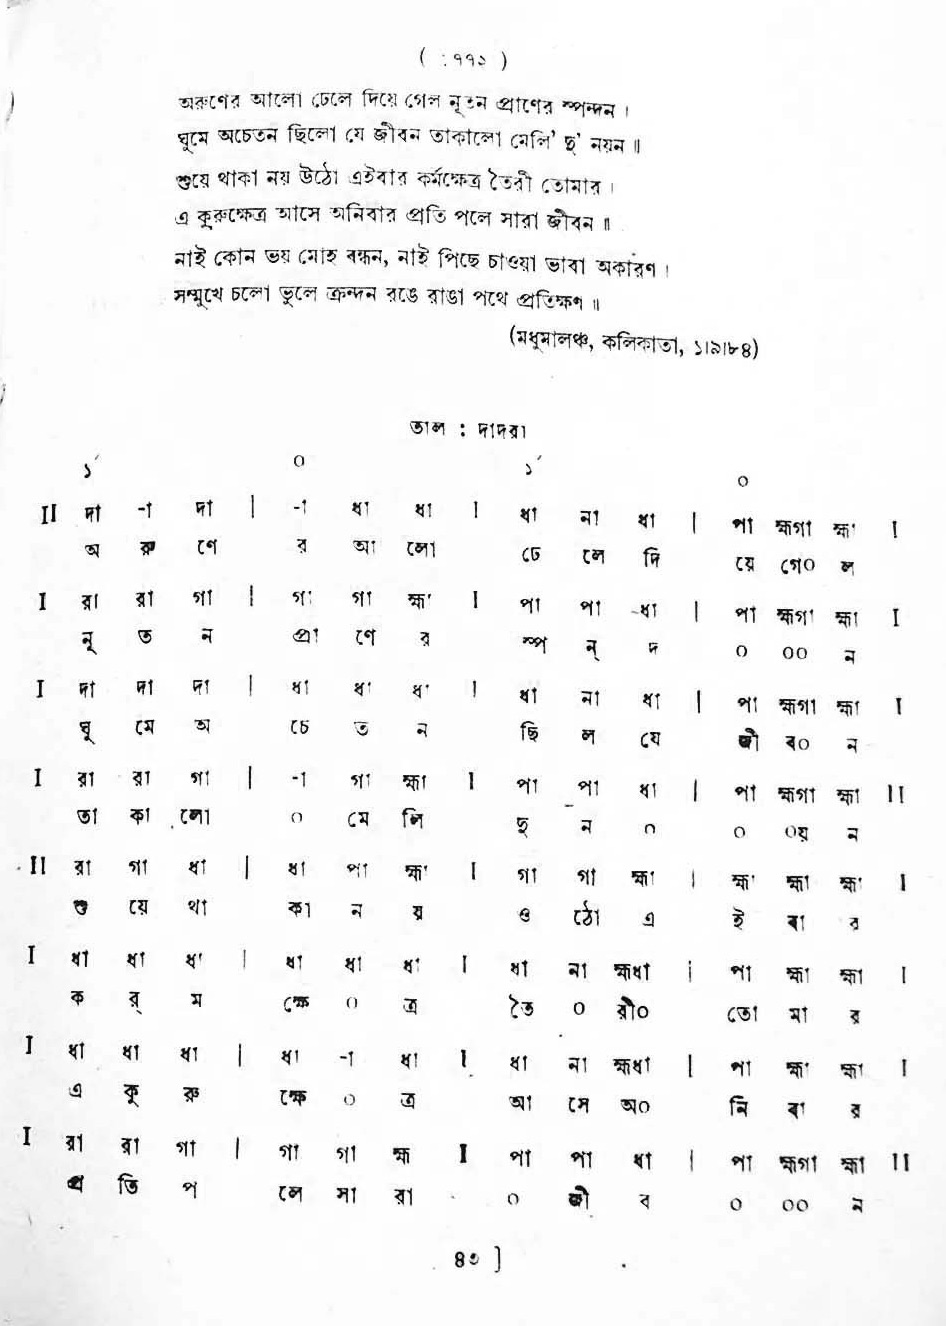 ( :৭৭১ )
অরুণের আলো ঢেলে দিয়ে গেল নূতন প্রাণের স্পন্দন ।
ঘুমে অচেতন ছিলো যে জীবন তাকালো মেলি' দু' নয়ন ॥
শুয়ে থাকা নয় উঠো এইবার কর্মক্ষেত্র তৈরী তোমার ।
এ কুরুক্ষেত্র আসে অনিবার প্রতি পলে সারা জীবন ॥
নাই কোন ভয় মোহ বন্ধন, নাই পিছে চাওয়া ভাবা অকারণ ।
সম্মুখে চলো ভুলে ক্রন্দন রঙে রাঙা পথে প্রতিক্ষণ ॥
(মধুমালঞ্চ, কলিকাতা, ১।৯।৮৪)
তাল : দাদরা
১´ ০ ১´ ০
II দা -া দা | -া ধা ধা I ধা না ধা | পা হ্মগা হ্মা I
অ রু ণে র আ লো ঢে লে দি য়ে গে০ ল
I রা রা গা | গা গা হ্মা I পা পা -ধা | পা হ্মগা হ্মা I
নূ ত ন প্রা ণে র স্প ন্ দ ০ ০০ ন
I দা দা দা | ধা ধা ধা I ধা না ধা | পা হ্মগা হ্মা I
ঘু মে অ চে ত ন ছি ল যে জী ব০ ন
I রা রা গা | -া গা হ্মা I পা পা ধা | পা হ্মগা হ্মা II
তা কা লো ০ মে লি দু ন ০ ০ ০য় ন
II রা গা ধা | ধা পা হ্মা I গা গা হ্মা | হ্মা হ্মা হ্মা I
শু য়ে থা কা ন য় ও ঠো এ ই বা র
I ধা ধা ধা | ধা ধা ধা I ধা না হ্মধা | পা হ্মা হ্মা I
ক র্ ম ক্ষে ০ ত্র তৈ ০ রী০ তো মা র
I ধা ধা ধা | ধা -া ধা I ধা না হ্মধা | পা হ্মা হ্মা I
এ কু রু ক্ষে ০ ত্র আ সে অ০ নি বা র
I রা রা গা | গা গা হ্ম I পা পা ধা | পা হ্মগা হ্মা II
প্র তি প লে সা রা ০ জী ব ০ ০০ ন
৪৩ ]